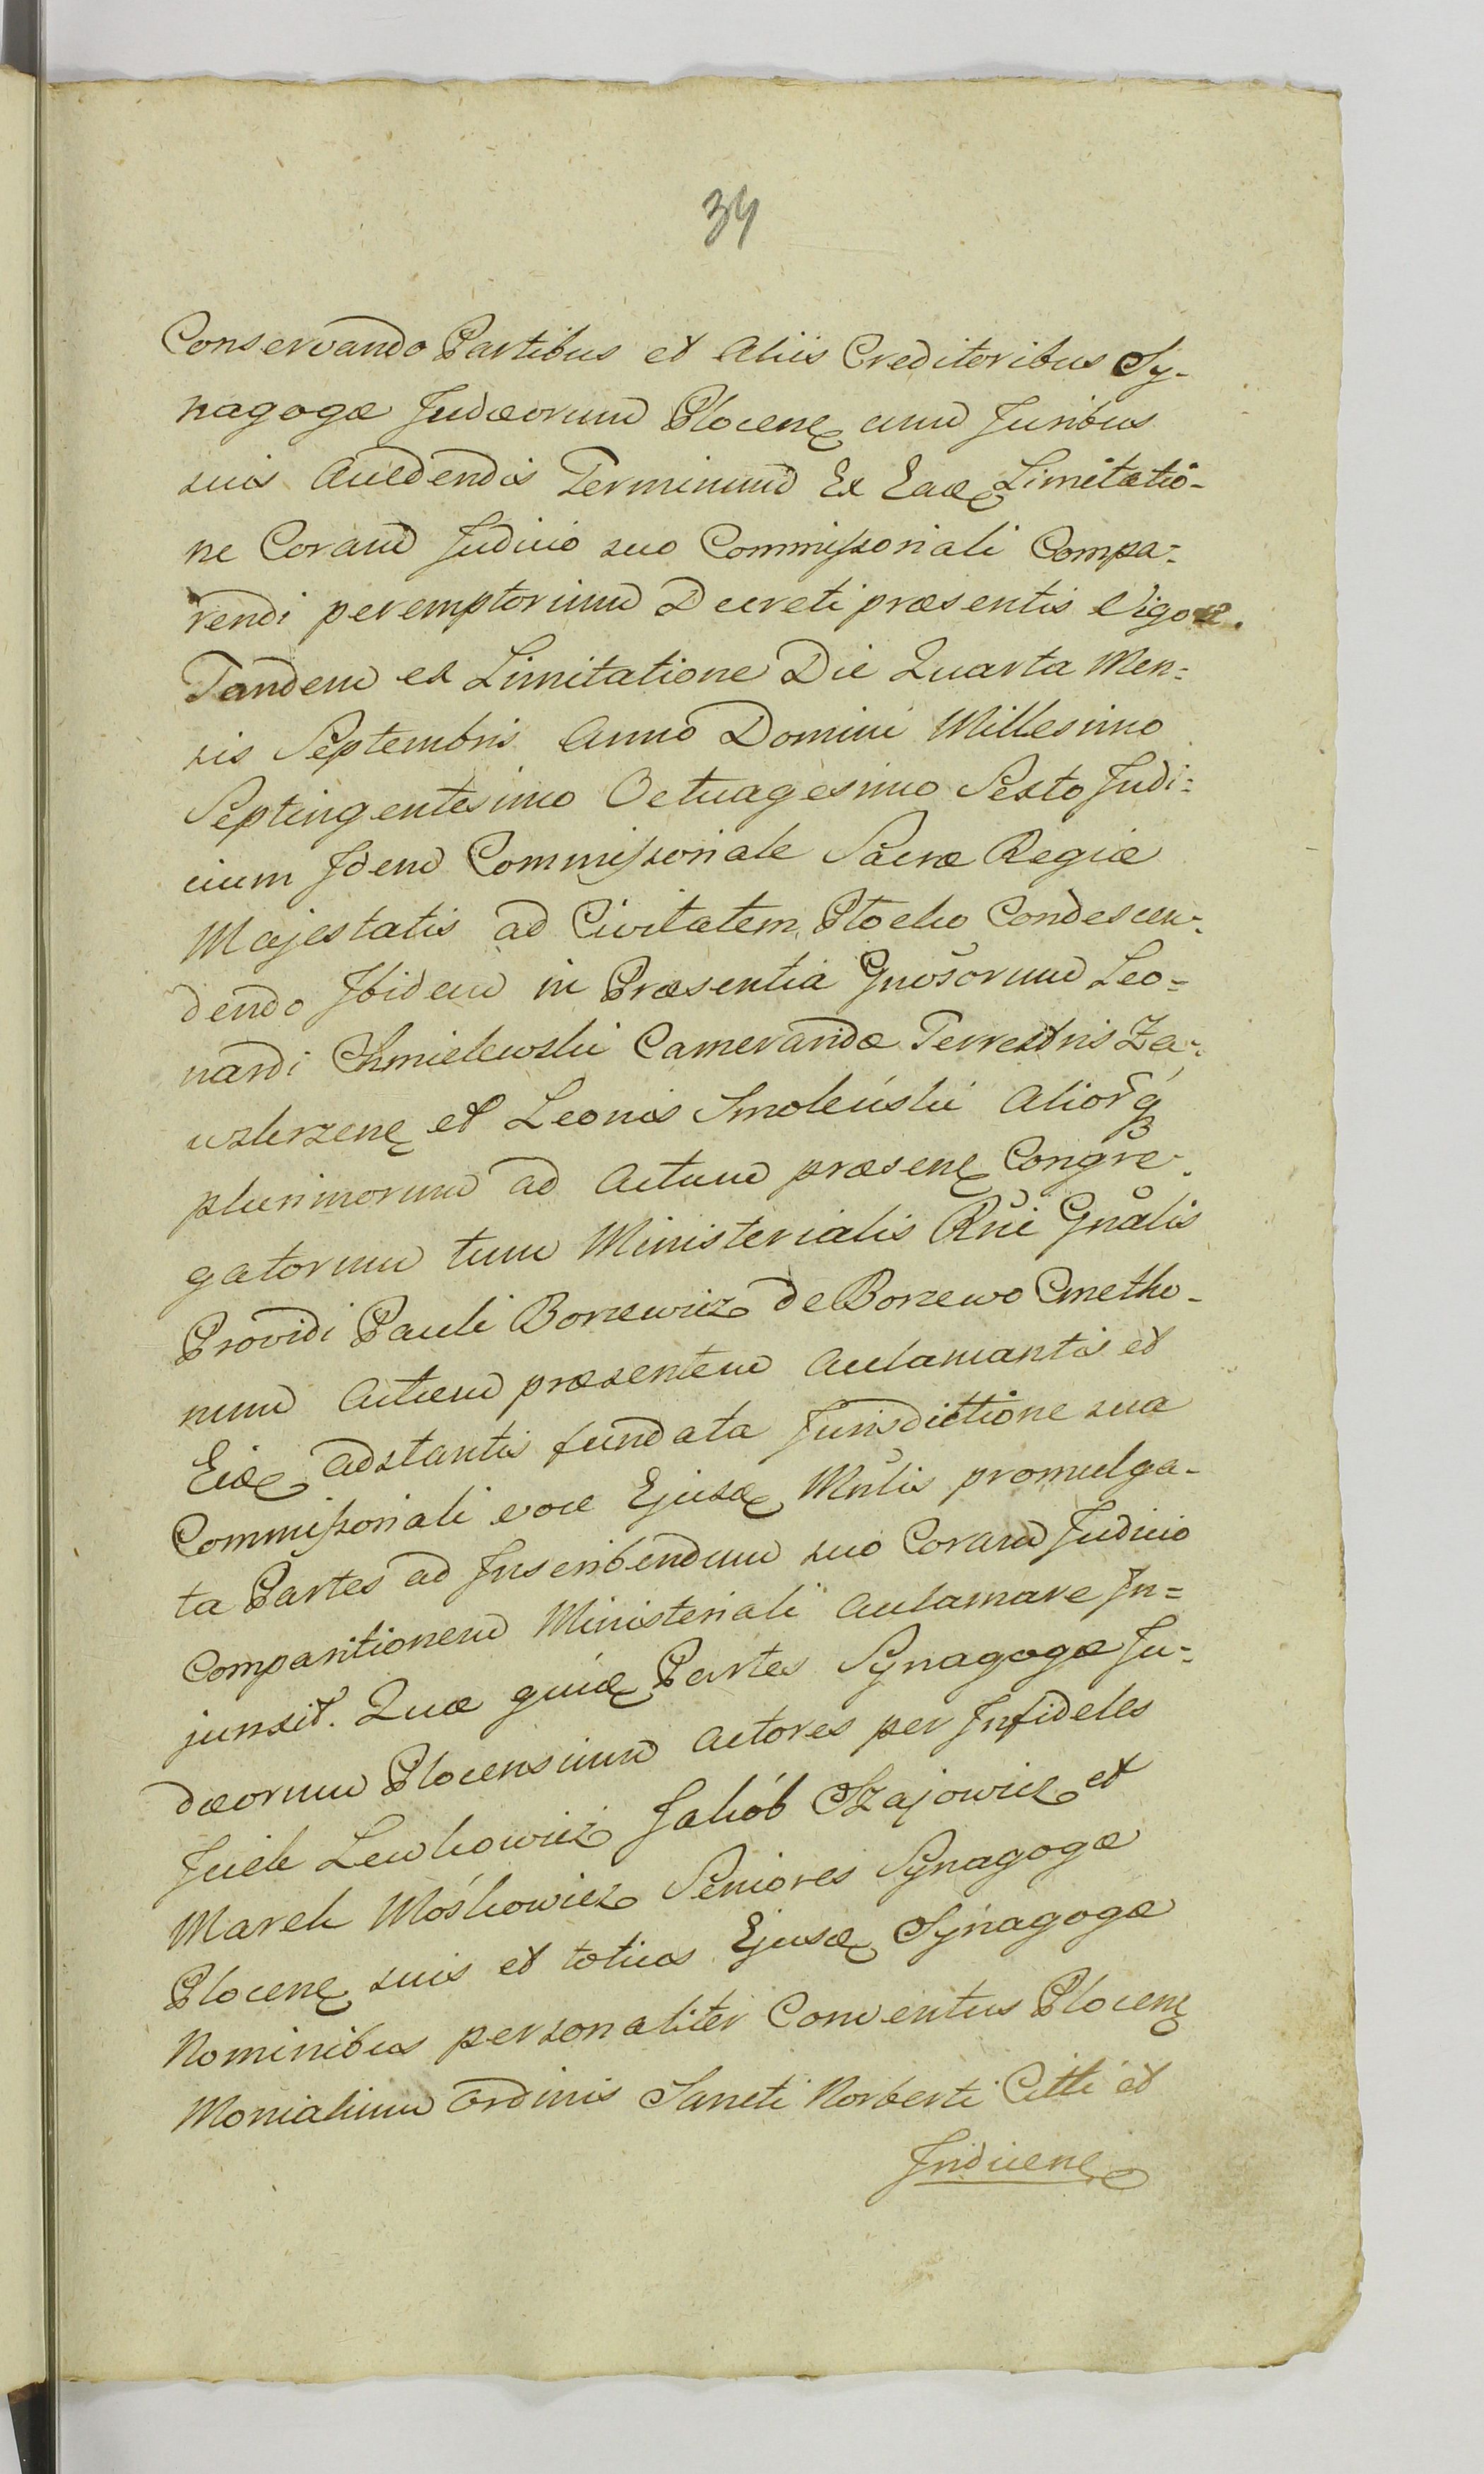 34
Conservando Partibus et Aliis Creditoribus Sy-
nagogæ Judæorum Plocenę cum Juribus
suis Accedendis Terminum Ex Eadę Limitatio-
ne Coram Judicio suo Commissoriali Compa-
rendi peremptorium Decreti præsentis Vigore.
Tandem ex Limitatione Die Quarta Men-
sis Septembris Anno Domini Millesimo
Septingentesimo Octuagesimo Sexto Judi-
cium Idem Commissoriale Sacræ Regiæ
Majestatis ad Civitatem Płocko Condescen-
dendo Ibidem in Præsentia Gnosorum Leo-
nardi Chmielewski Camerandæ Terrestris Za-
wskrzenę et Leonis Smoleński Aliorq
plurimorum ad Actum præsenę Congre-
gatorum tum Ministerialis Rni Gnalis
Providi Pauli Borzewicz de Borzewo Cmetho-
num Actum præsentem Acclamantis et
Eidę adstantis fundata Jurisdictione sua
Commissoriali voce Ejusdę Mnlis promulga-
ta Partes ad Inscribendum suo Coram Judicio
Comparitionem Ministeriali Acclamare In-
junxit. Quæ quidę Partes Synagogæ Ju-
dæorum Plocensium Actores per Infideles
Jcek Lewkowicz Jakób Szajowicz et
Marek Mośkowicz Seniores Synagogæ
Plocenę suis et totius Ejusdę Synagogæ
Nominibus personaliter Conventus Plocenę
Monialium Ordinis Sancti Norberti Citti et
Indicenę